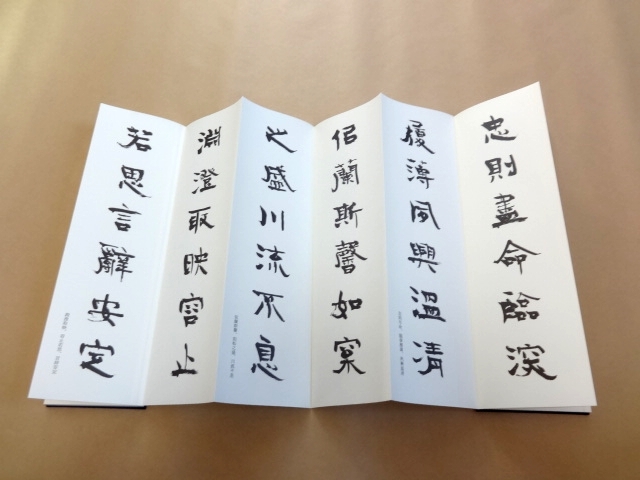 忠則盡命臨深
履薄夙興溫清
佀蘭斯馨如松
之盛川流不息
淵澄取映容止
若思言辭安定